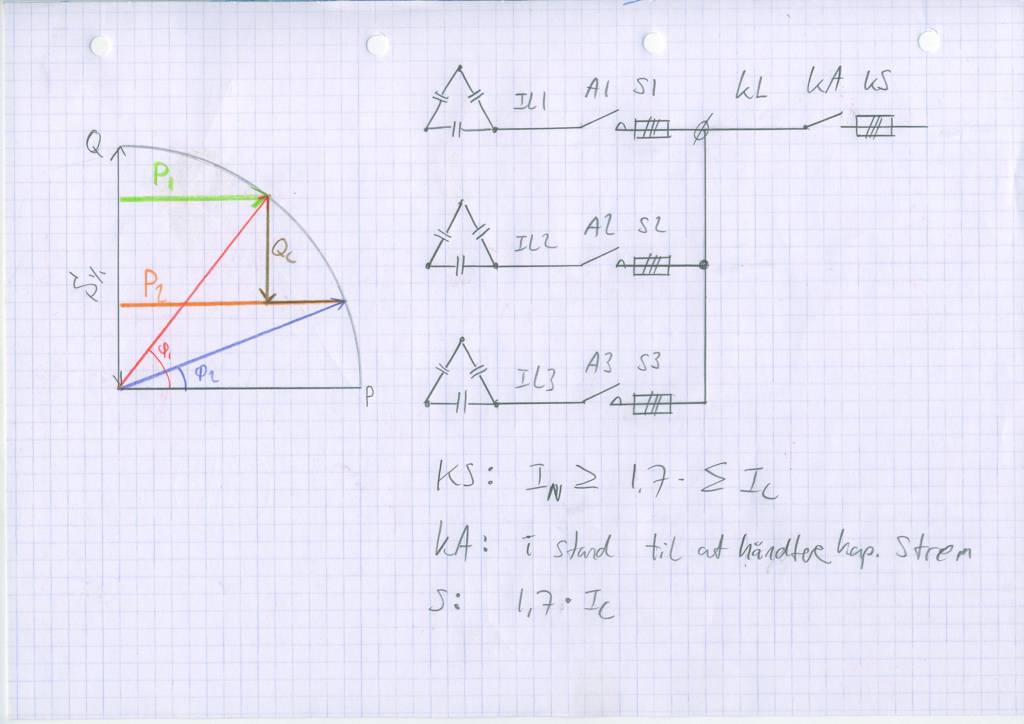 IL1 A1 S1 KL KA KS
Q
P₁
IL2 A2 S2
Qc
P₂
φ₁
φ₂
P
IL3 A3 S3
KS: I_N ≥ 1,7 · Σ I_C
KA: i stand til at håndtere kap. Strøm
S: 1,7 · I_C